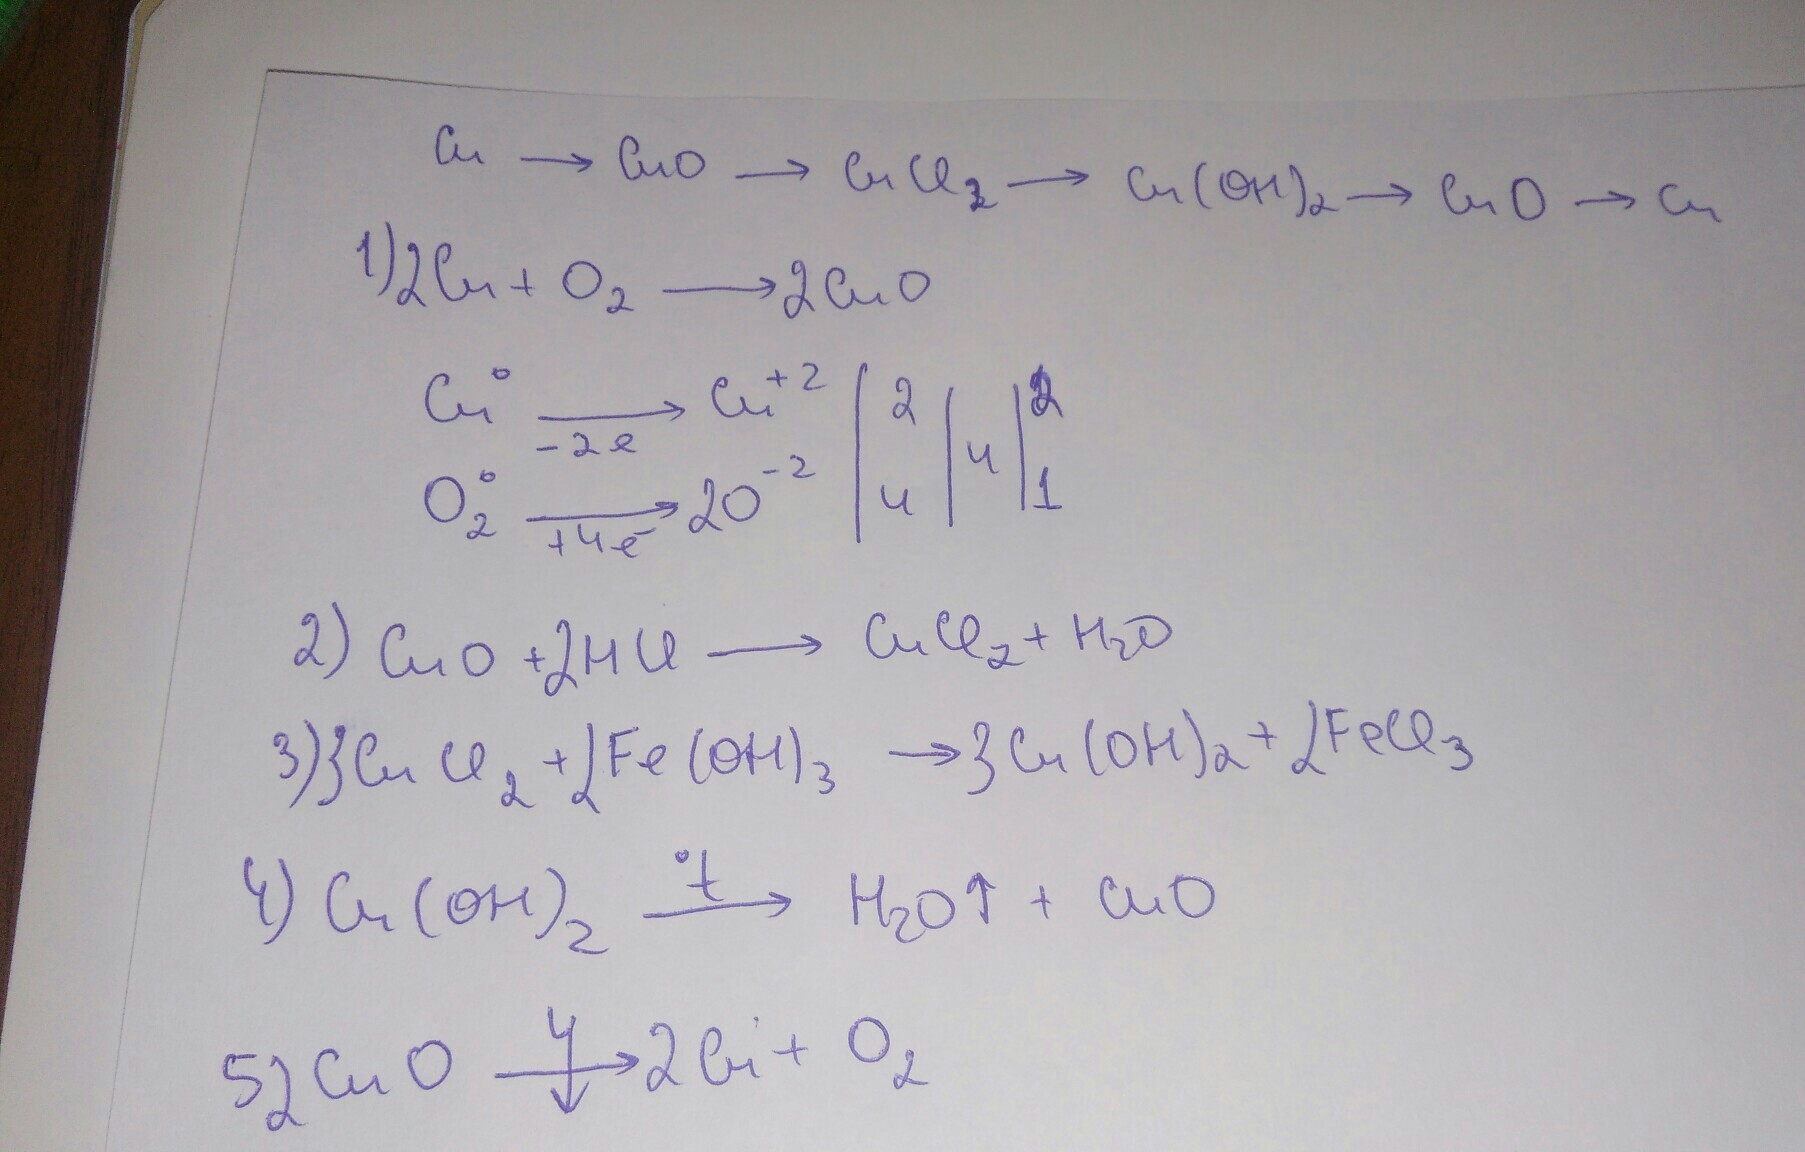 Cu → CuO → CuCl₂ → Cu(OH)₂ → CuO → Cu
1) 2Cu + O₂ → 2CuO
Cu⁰ → Cu⁺² | 2 | | 2
-2e 4
O₂⁰ → 2O⁻² | 4 | | 1
+4e⁻
2) CuO + 2HCl → CuCl₂ + H₂O
3) 3CuCl₂ + 2Fe(OH)₃ → 3Cu(OH)₂ + 2FeCl₃
4) Cu(OH)₂ →°t H₂O↑ + CuO
5) 2CuO → 2Cu + O₂